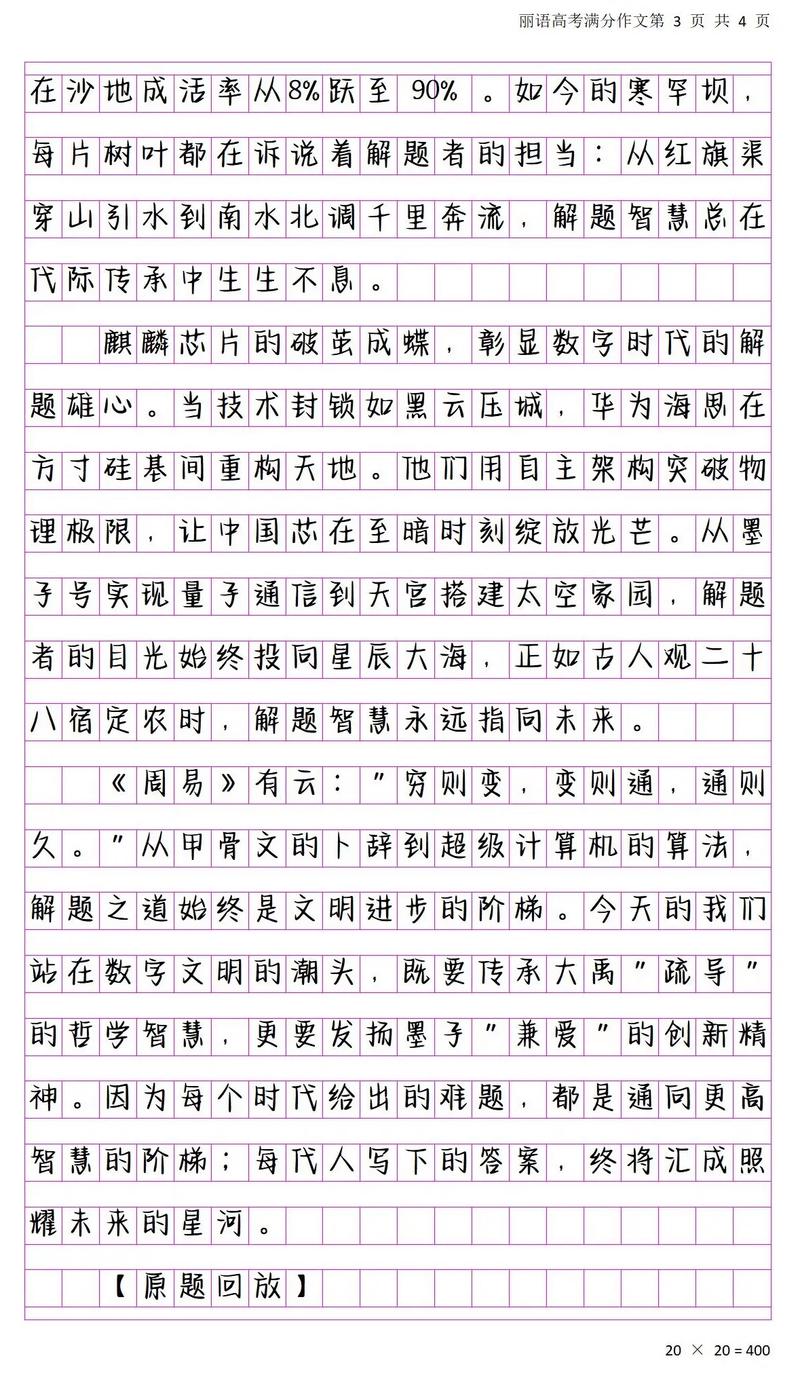 丽语高考满分作文第 3 页 共 4 页
在沙地成活率从8%跃至 90% 。如今的寒罕坝，
每片树叶都在诉说着解题者的担当：从红旗渠
穿山引水到南水北调千里奔流，解题智慧总在
代际传承中生生不息。
麒麟芯片的破茧成蝶，彰显数字时代的解
题雄心。当技术封锁如黑云压城，华为海思在
方寸硅基间重构天地。他们用自主架构突破物
理极限，让中国芯在至暗时刻绽放光芒。从墨
子号实现量子通信到天宫搭建太空家园，解题
者的目光始终投向星辰大海，正如古人观二十
八宿定农时，解题智慧永远指向未来。
《周易》有云："穷则变，变则通，通则
久。"从甲骨文的卜辞到超级计算机的算法，
解题之道始终是文明进步的阶梯。今天的我们
站在数字文明的潮头，既要传承大禹"疏导"
的哲学智慧，更要发扬墨子"兼爱"的创新精
神。因为每个时代给出的难题，都是通向更高
智慧的阶梯；每代人写下的答案，终将汇成照
耀未来的星河。
【原题回放】
20 × 20 = 400